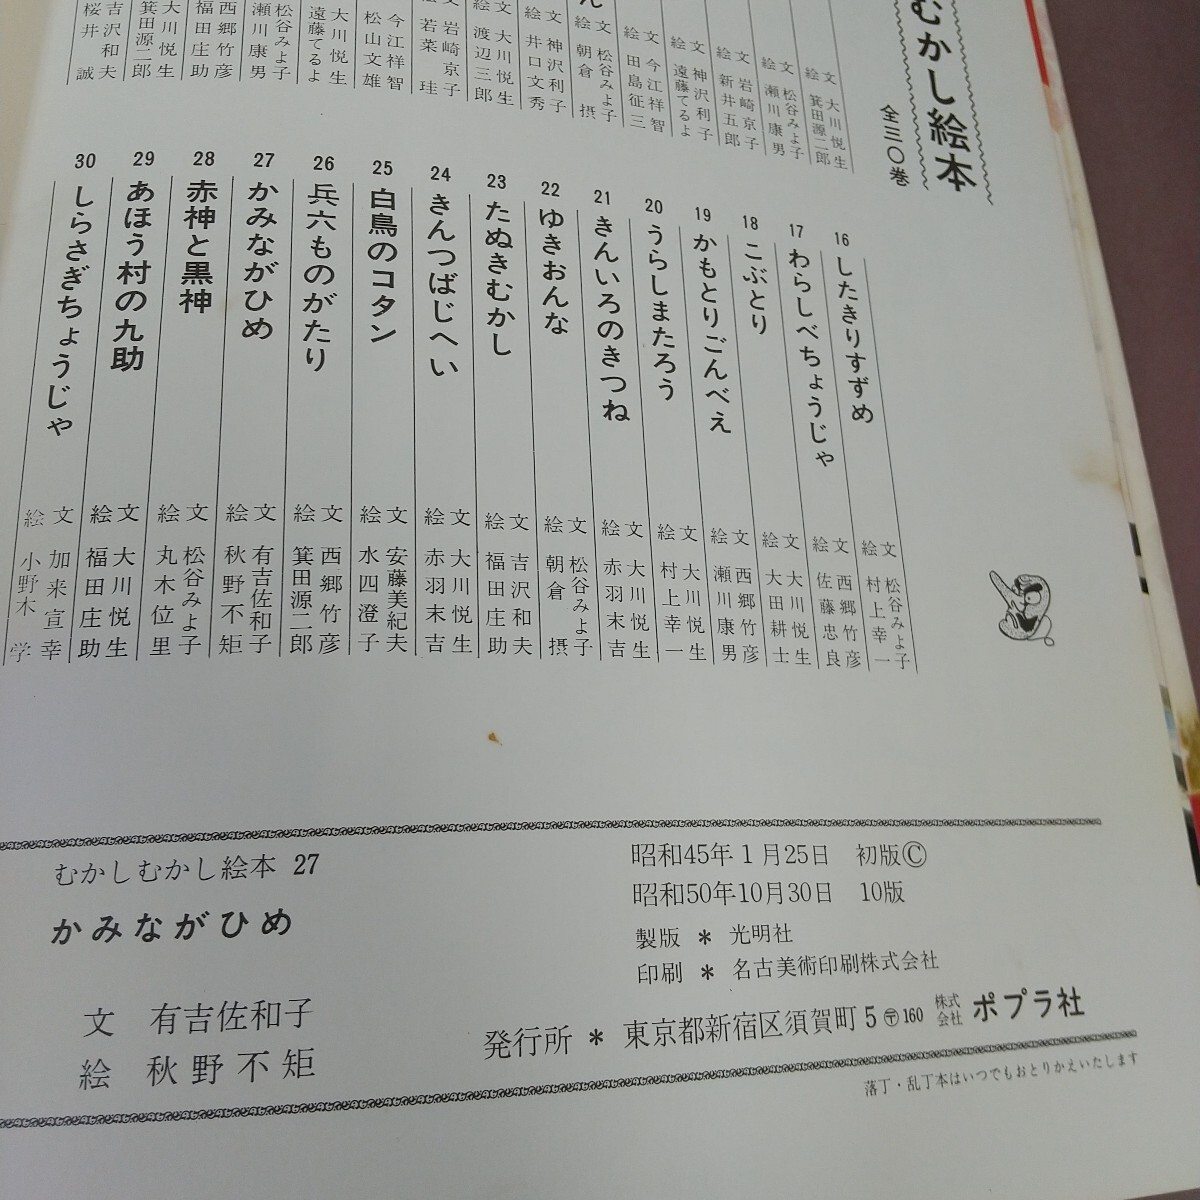 むかし絵本
全三〇巻
文 大川悦生
絵 箕田源二郎
文 松谷みよ子
絵 瀬川康男
文 岩崎京子
絵 新井五郎
文 神沢利子
絵 遠藤てるよ
文 今江祥智
絵 田島征三
ん
文 松谷みよ子
絵 朝倉摂
文 神沢利子
絵 井口文秀
文 大川悦生
絵 渡辺三郎
文 岩崎京子
絵 若菜珪
今江祥智
松山文雄
大川悦生
遠藤てるよ
松谷みよ子
瀬川康男
西郷竹彦
福田庄助
大川悦生
箕田源二郎
吉沢和夫
桜井誠
16 したきりすずめ 文 松谷みよ子
絵 村上幸一
17 わらしべちょうじゃ 文 西郷竹彦
絵 佐藤忠良
18 こぶとり 文 大川悦生
絵 太田耕士
19 かもとりごんべえ 文 西郷竹彦
絵 瀬川康男
20 うらしまたろう 文 大川悦生
絵 村上幸一
21 きんいろのきつね 文 大川悦生
絵 赤羽末吉
22 ゆきおんな 文 松谷みよ子
絵 朝倉摂
23 たぬきむかし 文 吉沢和夫
絵 福田庄助
24 きんつばじへい 文 大川悦生
絵 赤羽末吉
25 白鳥のコタン 文 安藤美紀夫
絵 水四澄子
26 兵六ものがたり 文 西郷竹彦
絵 箕田源二郎
27 かみながひめ 文 有吉佐和子
絵 秋野不矩
28 赤神と黒神 文 松谷みよ子
絵 丸木位里
29 あほう村の九助 文 大川悦生
絵 福田庄助
30 しらさぎちょうじゃ 文 加来宣幸
絵 小野木学
むかしむかし絵本 27
かみながひめ
文 有吉佐和子
絵 秋野不矩
昭和45年1月25日 初版Ⓒ
昭和50年10月30日 10版
製版 * 光明社
印刷 * 名古美術印刷株式会社
発行所 * 東京都新宿区須賀町5〶160 株式会社 ポプラ社
落丁・乱丁本はいつでもおとりかえいたします